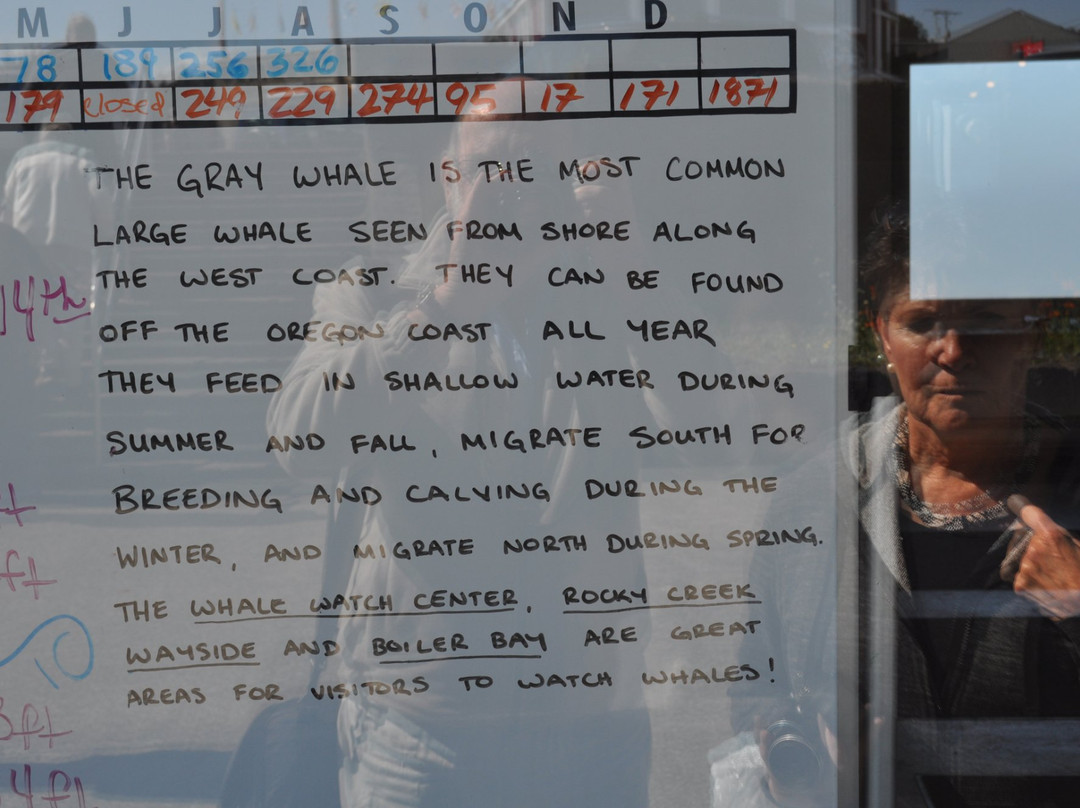 M J J A S O N D
78 189 256 326
179 closed 249 229 274 95 17 171 1871
THE GRAY WHALE IS THE MOST COMMON
LARGE WHALE SEEN FROM SHORE ALONG
14th THE WEST COAST. THEY CAN BE FOUND
OFF THE OREGON COAST ALL YEAR
THEY FEED IN SHALLOW WATER DURING
SUMMER AND FALL, MIGRATE SOUTH FOR
BREEDING AND CALVING DURING THE
WINTER, AND MIGRATE NORTH DURING SPRING.
ft
THE WHALE WATCH CENTER, ROCKY CREEK
WAYSIDE AND BOILER BAY ARE GREAT
AREAS FOR VISITORS TO WATCH WHALES!
3ft
4ft